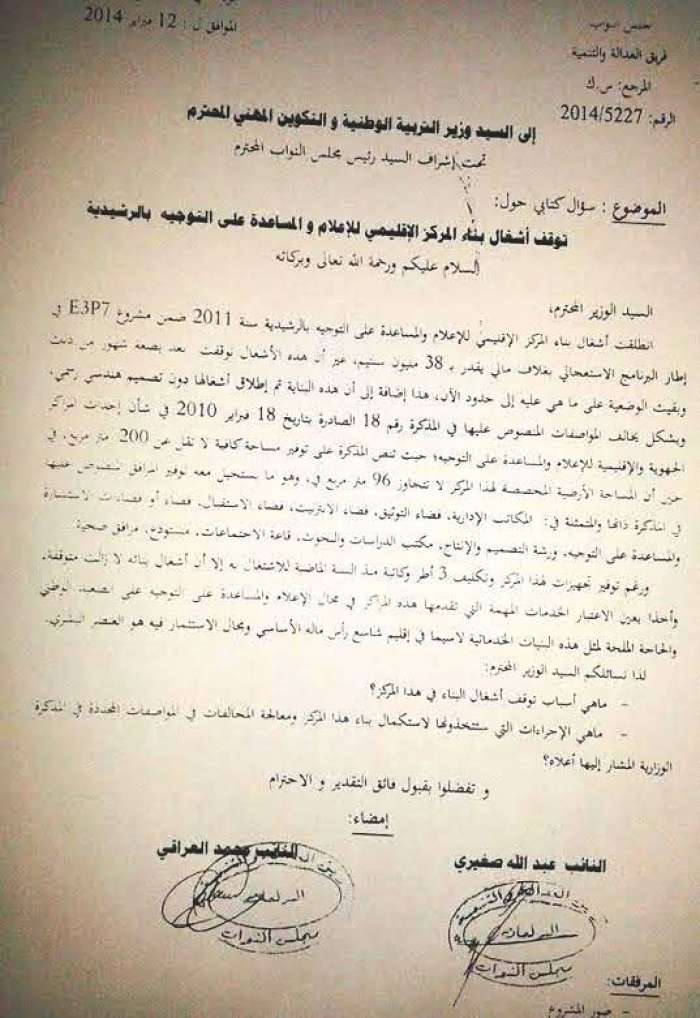 مجلس النواب
فريق العدالة والتنمية
المرجع: س.ك
الرقم: 2014/5227
الموافق ل : 12 فبراير 2014
إلى السيد وزير التربية الوطنية و التكوين المهني المحترم
تحت إشراف السيد رئيس مجلس النواب المحترم
الموضوع : سؤال كتابي حول:
توقف أشغال بناء المركز الإقليمي للإعلام و المساعدة على التوجيه بالرشيدية
السلام عليكم ورحمة الله تعالى وبركاته
السيد الوزير المحترم،
انطلقت أشغال بناء المركز الإقليمي للإعلام والمساعدة على التوجيه بالرشيدية سنة 2011 ضمن مشروع E3P7 في
إطار البرنامج الاستعجالي بغلاف مالي يقدر بـ 38 مليون سنتيم، غير أن هذه الأشغال توقفت بعد بضعة شهور من ذلك
وبقيت الوضعية على ما هي عليه إلى حدود الآن، هذا إضافة إلى أن هذه البناية تم إطلاق أشغالها دون تصميم هندسي رسمي،
وبشكل يخالف المواصفات المنصوص عليها في المذكرة رقم 18 الصادرة بتاريخ 18 فبراير 2010 في شأن إحداث المراكز
الجهوية والإقليمية للإعلام والمساعدة على التوجيه؛ حيث تنص المذكرة على توفير مساحة كافية لا تقل عن 200 متر مربع، في
حين أن المساحة الأرضية المخصصة لهذا المركز لا تتجاوز 96 متر مربع في، وهو ما يستحيل معه توفير المرافق المنصوص عليها
في المذكرة ذاتها والمتمثلة في: المكاتب الإدارية، فضاء التوثيق، فضاء الانترنيت، فضاء الاستقبال، فضاء أو فضاءات الاستشارة
والمساعدة على التوجيه، ورشة التصميم والإنتاج، مكتب الدراسات والبحوث، قاعة الاجتماعات، مستودع، مرافق صحية.
ورغم توفير تجهيزات لهذا المركز وتكليف 3 أطر وكاتبة منذ السنة الماضية للاشتغال به إلا أن أشغال بنائه لا زالت متوقفة،
وأخذا بعين الاعتبار الخدمات المهمة التي تقدمها هذه المراكز في مجال الإعلام والمساعدة على التوجيه على الصعيد الوطني
والحاجة الملحة لمثل هذه البنيات الخدماتية لاسيما في إقليم شاسع رأس ماله الأساسي ومجال الاستثمار فيه هو العنصر البشري.
لذا نسائلكم السيد الوزير المحترم:
- ماهي أسباب توقف أشغال البناء في هذا المركز؟
- ماهي الإجراءات التي ستتخذونها لاستكمال بناء هذا المركز ومعالجة المخالفات في المواصفات المحددة في المذكرة
الوزارية المشار إليها أعلاه؟
و تفضلوا بقبول فائق التقدير و الاحترام
إمضاء:
النائب عبد الله صغيري
النائب محمد العراقي
فريق العدالة والتنمية
البرلماني
مجلس النواب
فريق العدالة والتنمية
البرلماني
مجلس النواب
المرفقات:
- صور المشروع